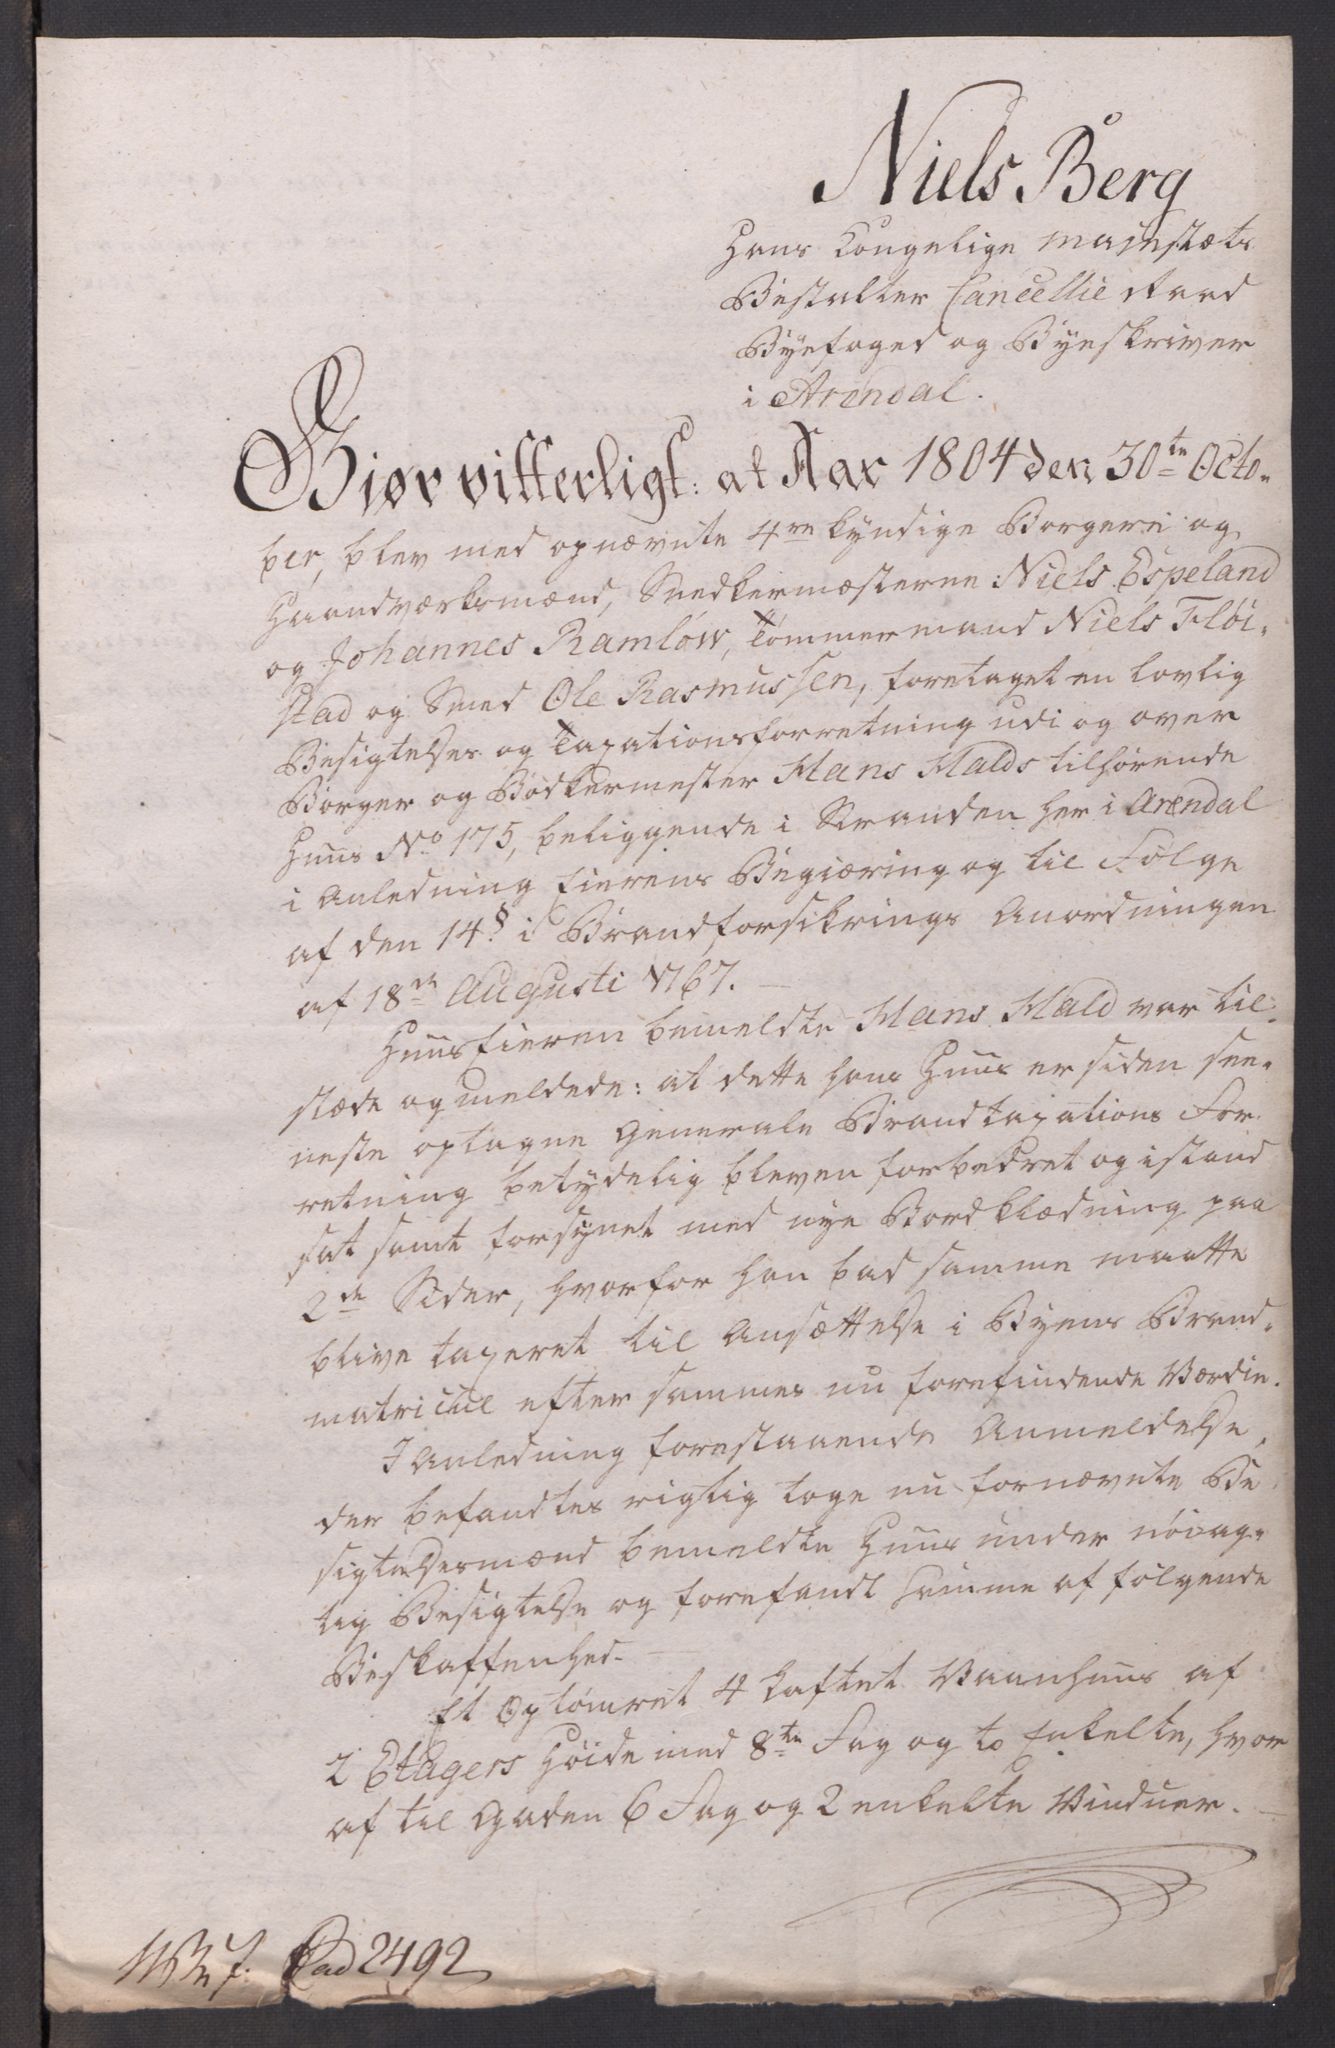 Niels Berg
Hans Kongelige Majestæts
Bestalter Cancellie Raad
Byefoged og Byeskriver
i Arendal.
Giør vitterligt: at Aar 1804 den 30te Octo-
ber, blev med opnævnte 4re kyndige Borgere og
Haandværksmænd, Snedkermesterne: Niels Espeland
og Johannes Ramlow, Tömmermand Niels Flöi-
stad og Smed Ole Rasmussen, foretaget en lovlig
Besigtelses og Taxationsforretning udi og over
Borger og Bödkermester Hans Halds tilhörende
Huus No 175, beliggende i Stranden her i Arendal
i Anledning Eierens Begiæring og til Fölge
af den 14 § i Brandforsikrings Anordningen
af 18de Augusti 1767.
Huuseieren bemeldte Hans Hald var til-
stæde og meldede: at dette hans Huus er siden see-
neste optagne Generale Brandtaxations For-
retning betydelig bleven forbedret og istand
sat samt forsynet med nye Bordklædning paa
2de Sider, hvorfor han bad samme maatte
blive taxeret til Ansættelse i Byens Brand-
matricul efter sammes nu forefindende Værdie.
I Anledning forestaaende Anmeldelse,
der befandtes rigtig toge nu fornævnte Be
sigtelsesmænd bemeldte Huus under nöiag-
tig Besigtelse og forefandt samme af fölgende
Beskaffenhed.
Et Optömret 4 kaftet Vaanhuus af
2 Etagers Höide med 8te Fag og to Enkelte, hvor
af til Gaden 6 Fag og 2 enkelte Vinduer.
2492